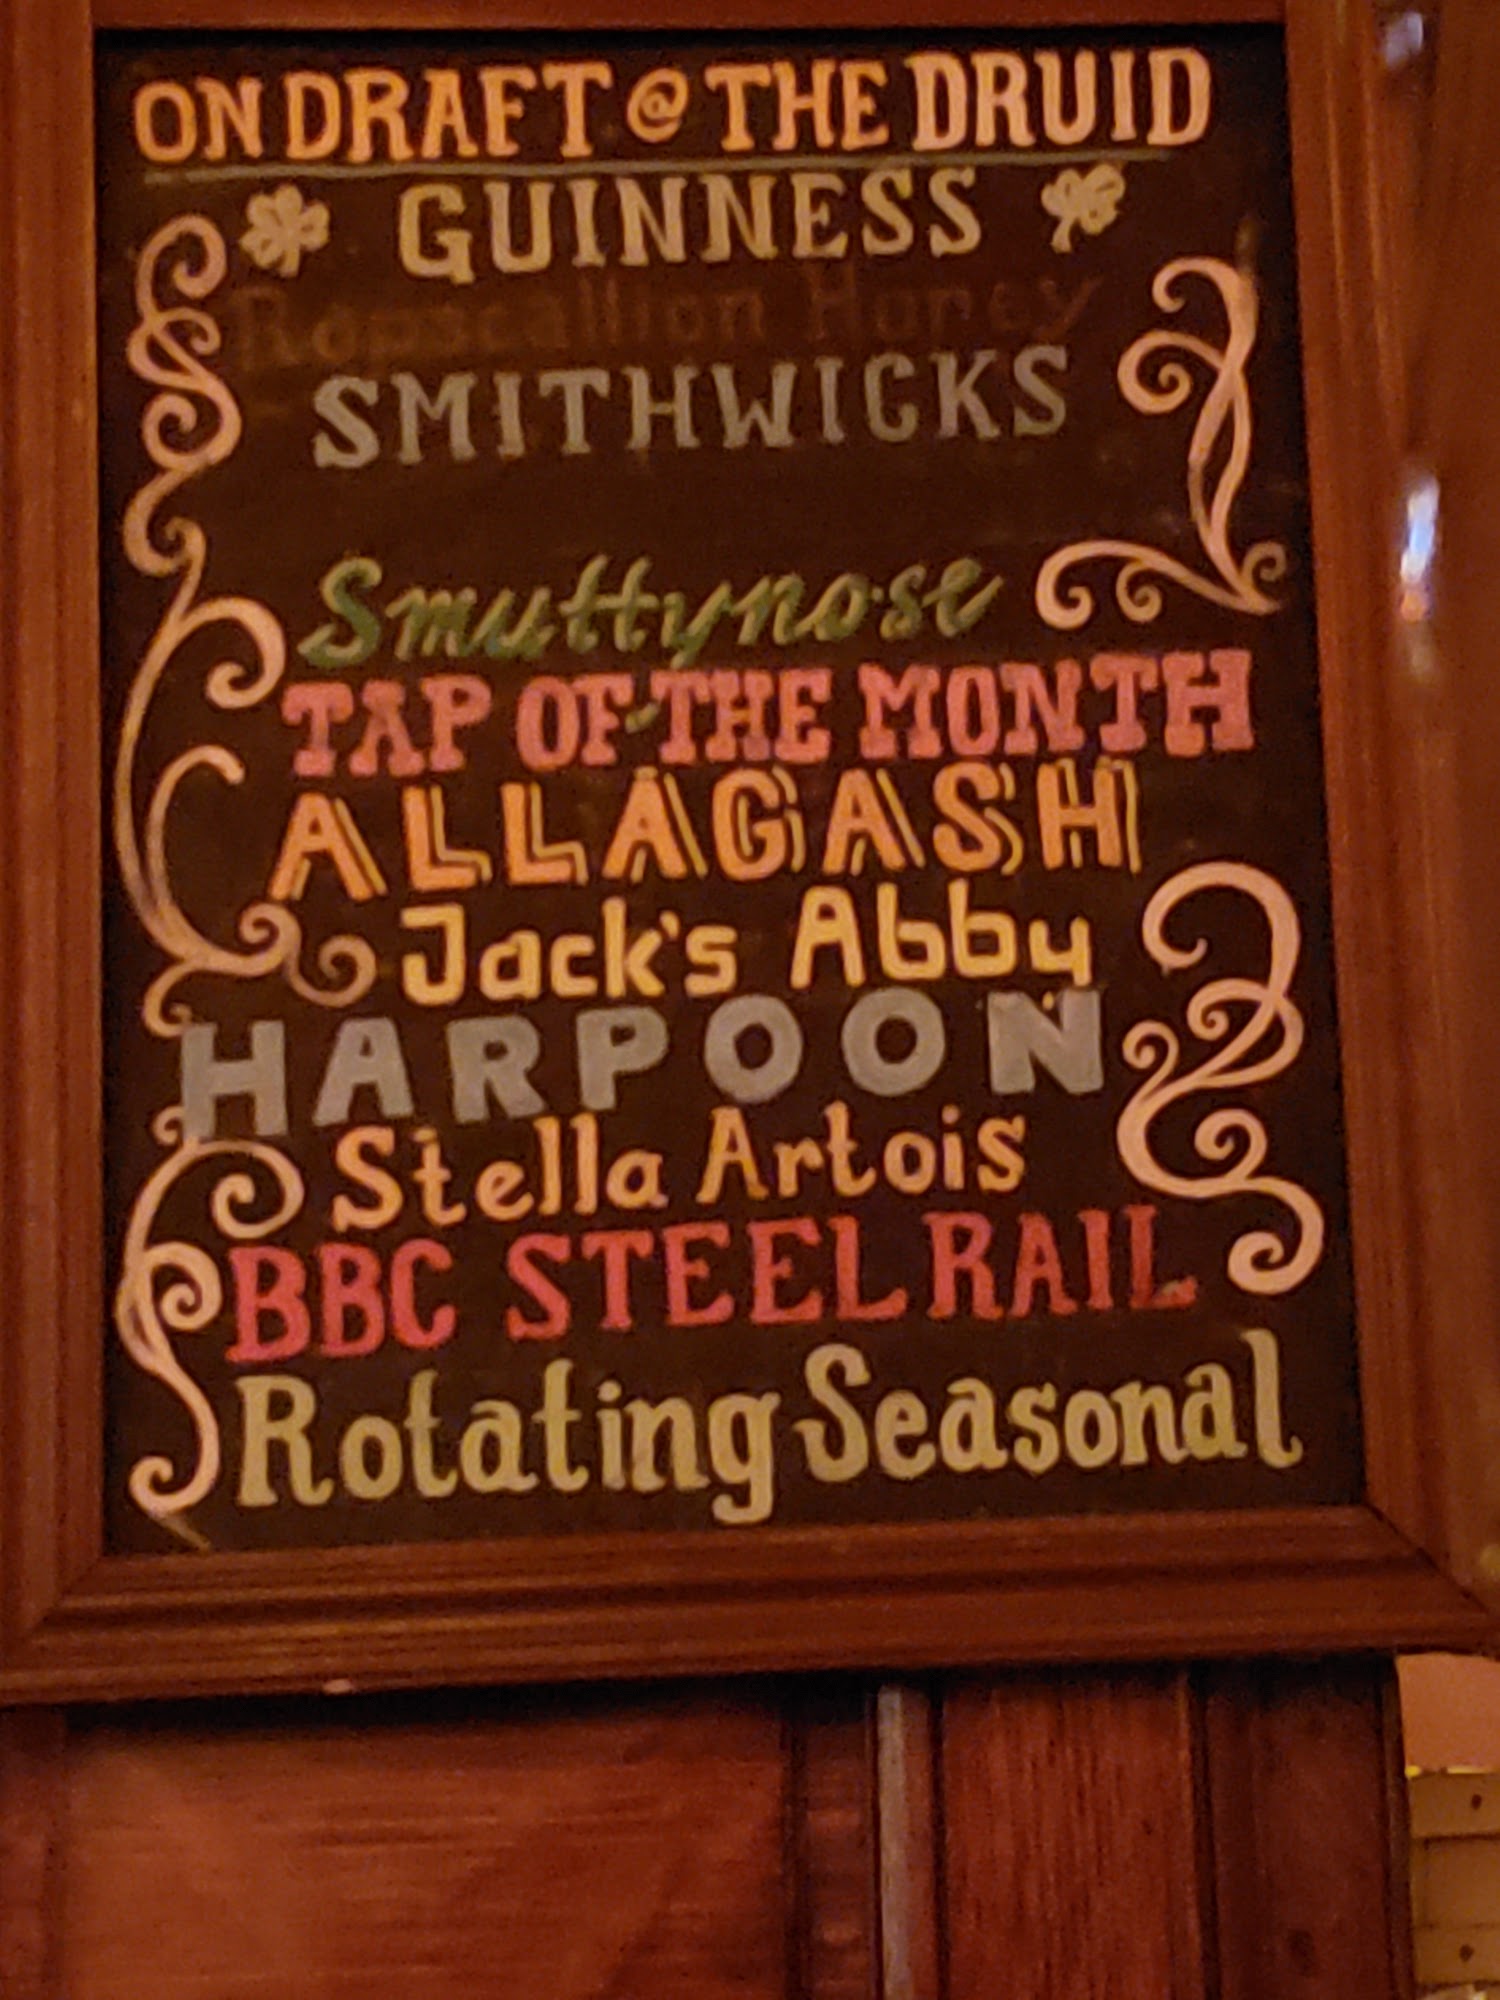 ON DRAFT @ THE DRUID
GUINNESS
Honey
SMITHWICKS
Smuttynose
TAP OF THE MONTH
ALLAGASH
Jack's Abby
HARPOON
Stella Artois
BBC STEEL RAIL
Rotating Seasonal